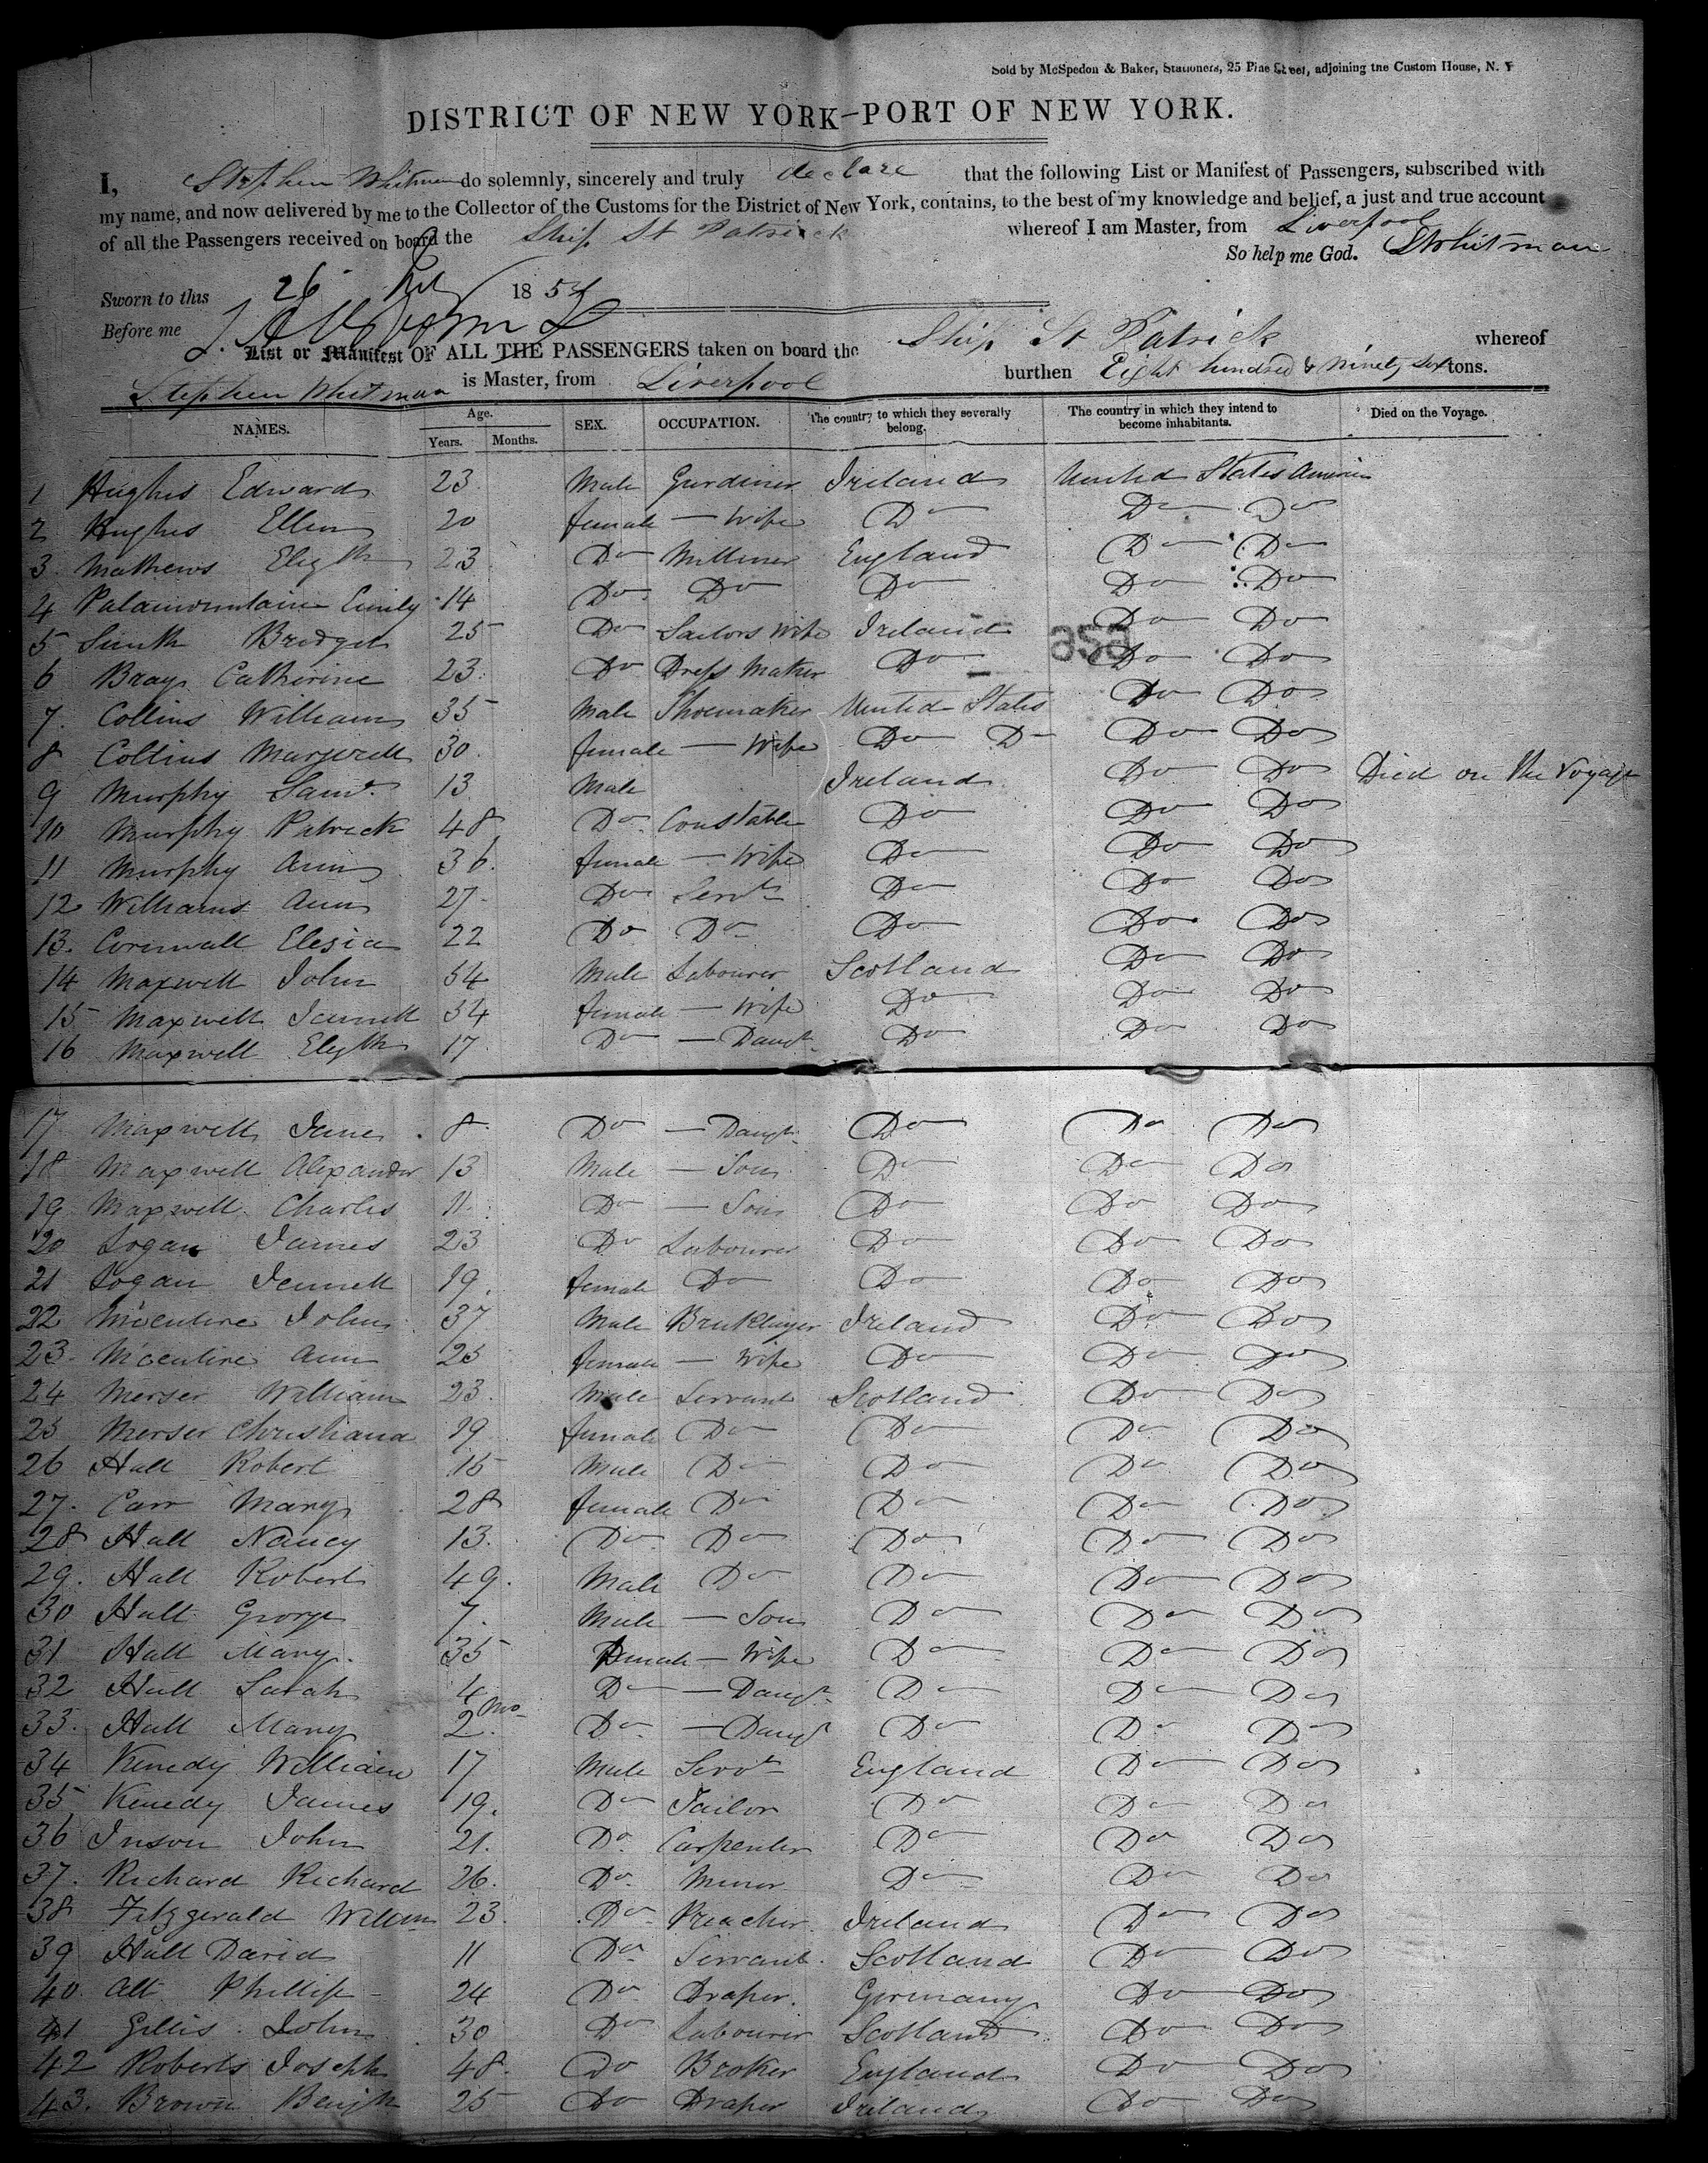 Sold by McSpedon & Baker, Stationers, 25 Pine Street, adjoining the Custom House, N. Y
DISTRICT OF NEW YORK—PORT OF NEW YORK.
I, Stephen Whitman do solemnly, sincerely and truly declare that the following List or Manifest of Passengers, subscribed with
my name, and now delivered by me to the Collector of the Customs for the District of New York, contains, to the best of my knowledge and belief, a just and true account
of all the Passengers received on board the Ship St Patrick whereof I am Master, from Liverpool
So help me God. S Whitman
Sworn to this 26 1854
Before me
List or Manifest OF ALL THE PASSENGERS taken on board the Ship St Patrick whereof
Stephen Whitman is Master, from Liverpool burthen Eight hundred & Ninety Six tons.
NAMES. Age. Years. Months. SEX. OCCUPATION. The country to which they severally belong. The country in which they intend to become inhabitants. Died on the Voyage.
1 Hughes Edward 23 Male Gardiner Ireland United States America
2 Hughes Ellen 20 female — Wife Do Do Do
3 Mathews Elizth 23 Do Milliner England Do Do
4 Palamountain Emily 14 Do Do Do Do Do
5 Smith Bridget 25 Do Sailors Wife Ireland Do Do
656
6 Brays Catherine 23 Do Dress Maker Do Do Do
7. Collins William 35 Male Shoemaker United States Do Do
8 Collins Margrett 30 female — Wife Do Do Do Do
9 Murphy Saml. 13 Male Ireland Do Do Died on the Voyage
10 Murphy Patrick 48 Do Constable Do Do Do
11 Murphy Ann 36. female — Wife Do Do Do
12 Williams Ann 27 Do Servt Do Do Do
13. Cornwall Elesia 22 Do Do Do Do Do
14 Maxwell John 54 Male Labourer Scotland Do Do
15 Maxwell Jannett 54 female — Wife Do Do Do
16 Maxwell Elizth 17 Do — Daugt Do Do Do
17 Maxwell Jane 8 Do — Daugt Do Do Do
18 Maxwell Alexander 13 Male — Son Do Do Do
19 Maxwell Charles 11. Do — Son Do Do Do
20 Logan James 23 Do Labourer Do Do Do
21 Logan Jennett 19. female Do Do Do Do
22 McEntire John 37 Male Bricklayer Ireland Do Do
23. McEntire Ann 25 female — Wife Do Do Do
24 Merser William 23. Male Servant Scotland Do Do
25 Merser Christiana 19 female Do Do Do Do
26 Hall Robert 15 Male Do Do Do Do
27. Carr Mary 28 female Do Do Do Do
28 Hall Nancy 13. Do Do Do Do Do
29. Hall Robert 49. Male Do Do Do Do
30 Hall George 7. Male — Son Do Do Do
31 Hall Mary. 35 Female — Wife Do Do Do
32 Hall Sarah 4 Do — Daugt Do Do Do
33. Hall Mary 2 Mo Do — Daugt Do Do Do
34 Kenedy William 17 Male Servt England Do Do
35 Kenedy James 19. Do Tailor Do Do Do
36 Inson John 21. Do Carpenter Do Do Do
37. Richard Richard 26. Do Minor Do Do Do
38 Fitzgerald Willm 23. Do Preacher Ireland Do Do
39 Hall David 11 Do Servant Scotland Do Do
40. Alt Phillip 24 Do Draper. Germany Do Do
41 Gillis John 30 Do Labourer Scotland Do Do
42 Roberts Joseph 48. Do Broker England Do Do
43. Brown Benjn 25 Do Draper Ireland Do Do